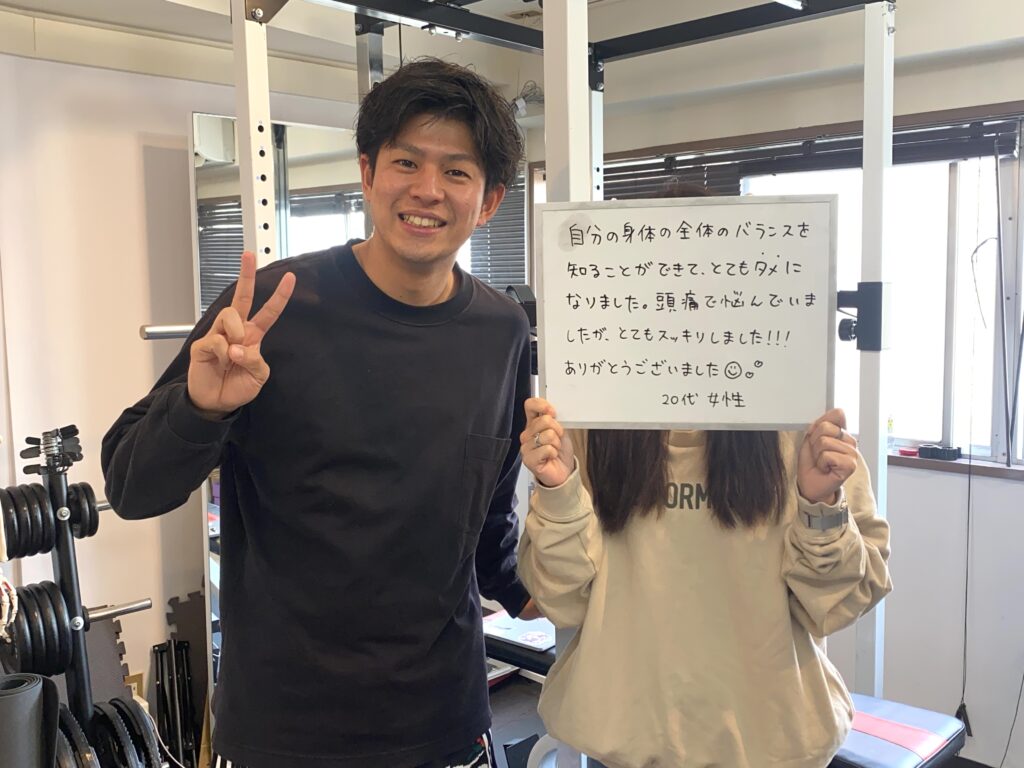 自分の身体の全体のバランスを
知ることができて、とてもタメに
なりました。頭痛で悩んでいま
したが、とてもスッキリしました!!!
ありがとうございました☺
20代 女性
ORM